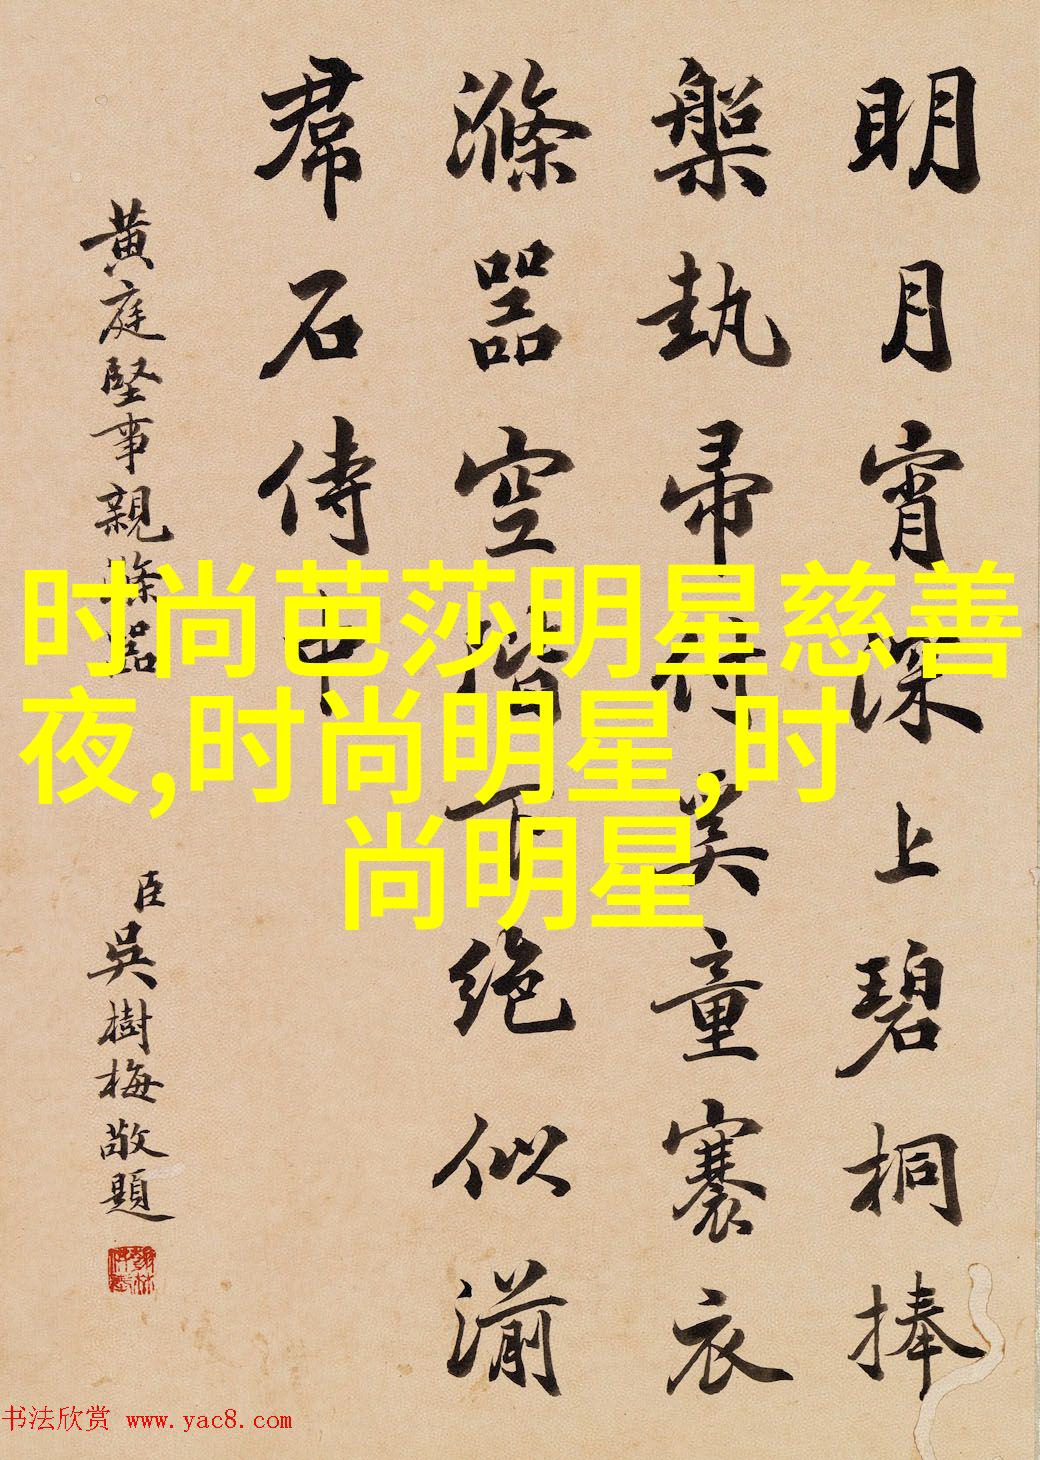 明月宵深上碧桐捧
槃執帚付美童褰衣
滌器空堦下絶似湔
帬石侍中
黃庭堅事親滌器
臣吳樹梅敬題
时尚芭莎明星慈善
夜,时尚明星,时
尚明星
书法欣赏 www.yac8.com